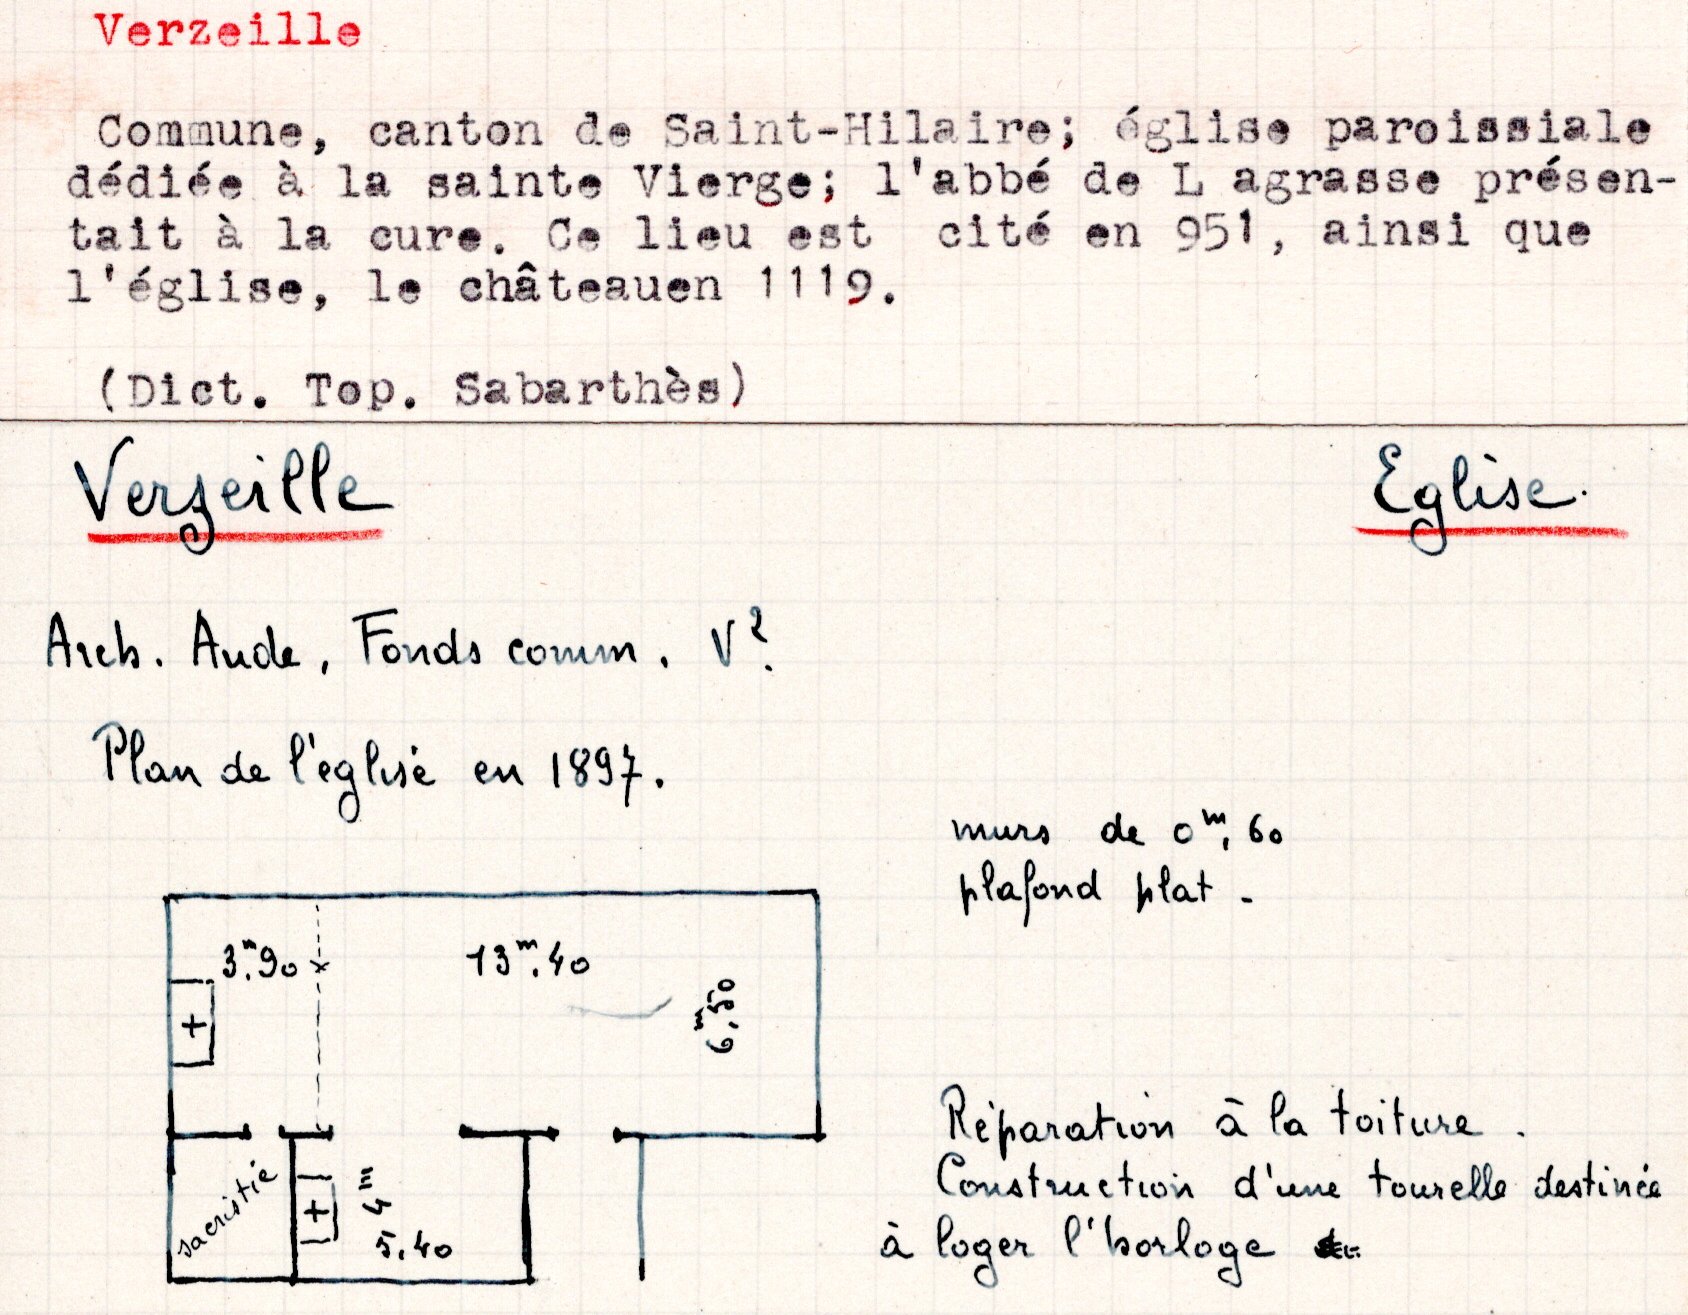 Verzeille
Commune, canton de Saint-Hilaire; église paroissiale
dédiée à la sainte Vierge; l'abbé de L agrasse présen-
tait à la cure. Ce lieu est cité en 951, ainsi que
l'église, le châteauen 1119.
(Dict. Top. Sabarthès)
Verzeille
Eglise.
Arch. Aude, Fonds comm. V².
Plan de l'église en 1897.
murs de 0m,60
plafond plat -
3m.90
13m.40
6m,50
sacristie
5,40
Réparation à la toiture.
Construction d'une tourelle destinée
à loger l'horloge